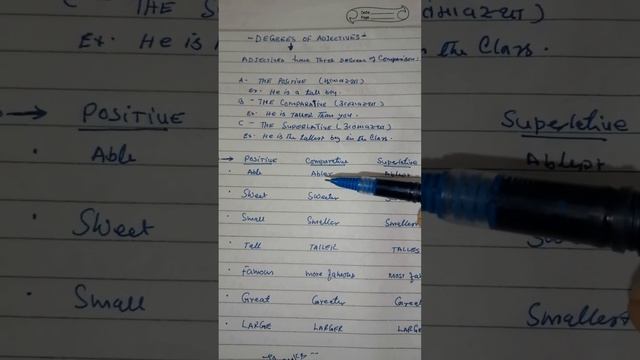 Date
Page
- DEGREES OF ADJECTIVES -
ADJECTIVES have Three Degrees of Comparison:
A - THE POSITIVE
Ex. He is a tall boy.
B - THE COMPARATIVE
Ex. He is TALLER Than you.
C - THE SUPERLATIVE
Ex. He is the tallest boy in the Class.
POSITIVE Comparative Superlative
Able Abler Ablest
Sweet Sweeter
Small Smaller Smallest
Tall TALLER TALLES
Famous more famous most fa
Great Greater Greatest
LARGE LARGER LARGE
C - THE
Ex. He is
POSITIVE
Able
Sweet
Small
in the Class.
Superlative
Ablest
Smallest